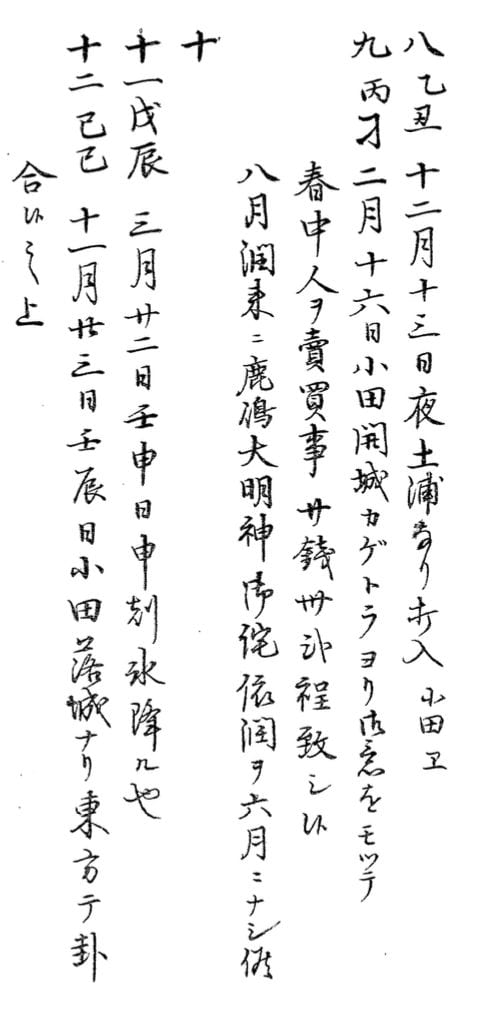 八 乙丑 十二月十三日夜土浦ゟり打入小田ヱ
九 丙刁 二月十六日小田開城カゲトラヨリ御意をモツテ
春中人ヲ賣買事廿銭卅弐程致シ候
八月潤来ニ鹿嶋大明神御詫依潤ヲ六月ニナシ候
十
十一戊辰 三月廿二日壬申日申剋氷降ル也
十二己巳 十一月廿三日壬辰日小田落城ナリ東方テ卦
合候
上